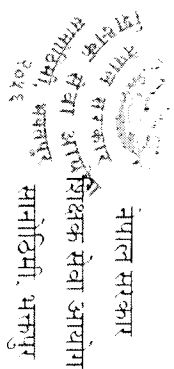 नेपाल सरकार
शिक्षक सेवा आयोग
सानोठिमी, भक्तपुर
नेपाल सरकार
शिक्षक सेवा आयोग
सानोठिमी, भक्तपुर
२०५९